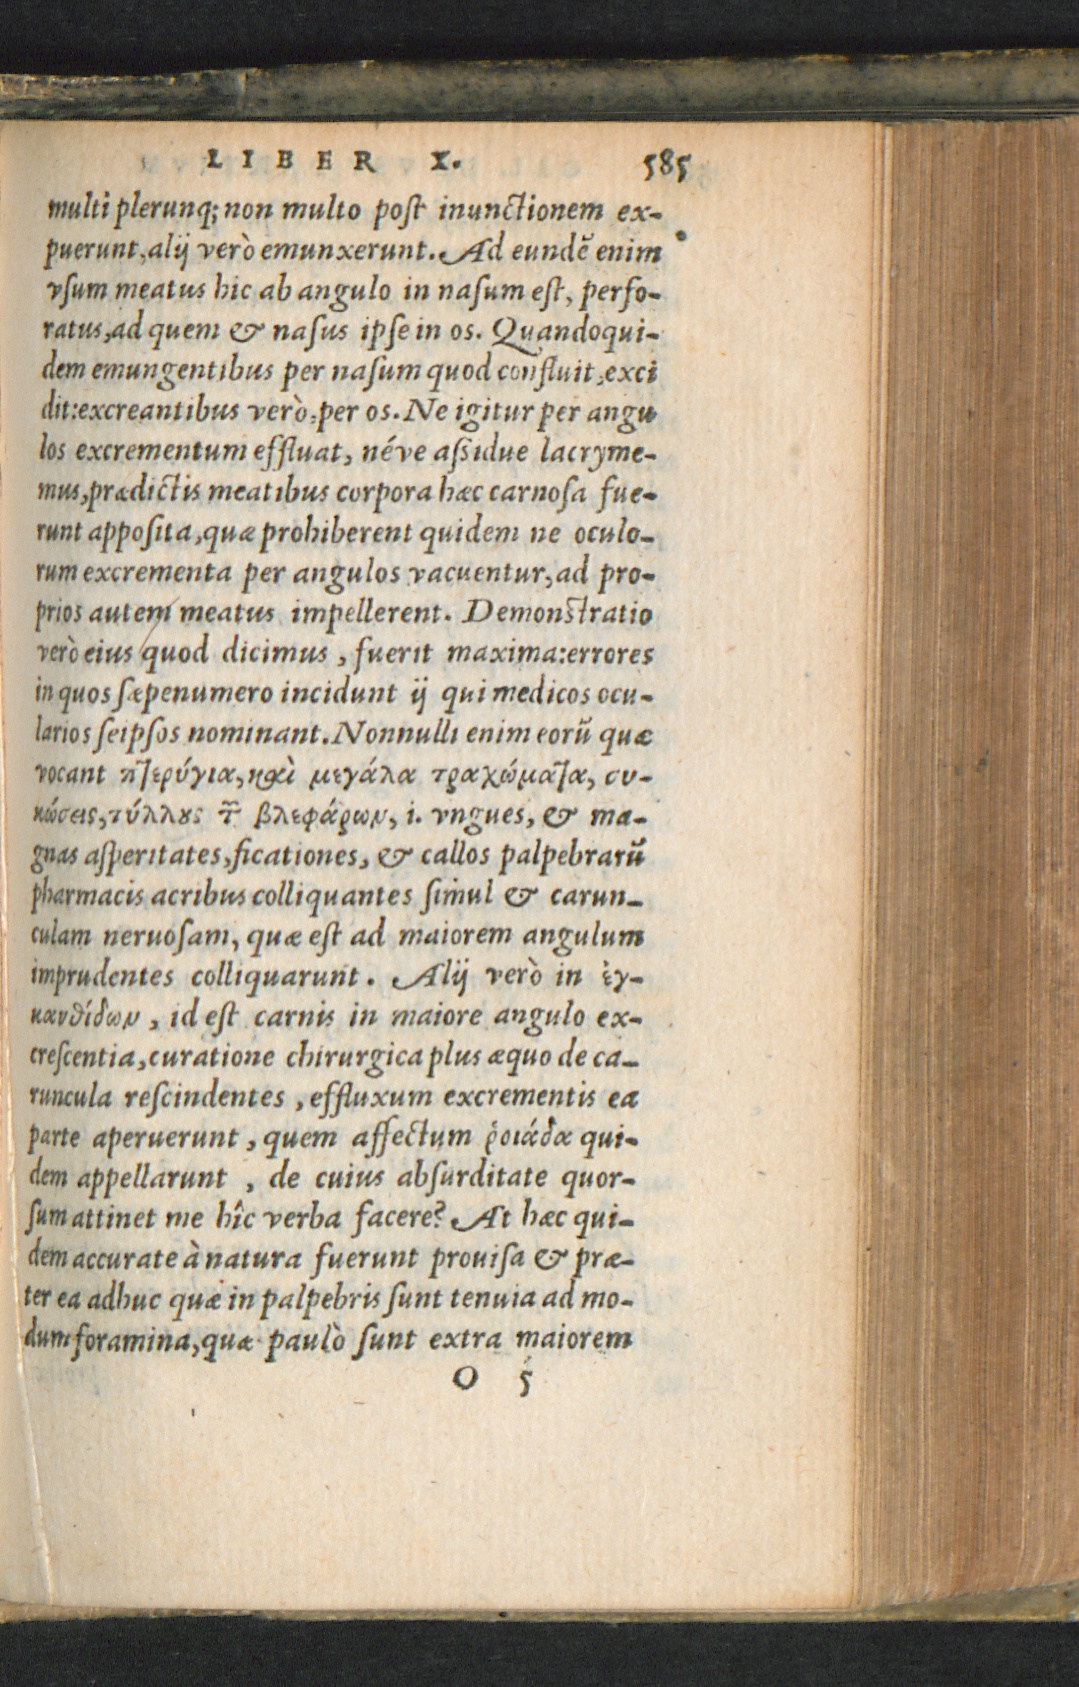 LIBER X. 585
multi plerunq; non multo post inunctionem ex-
puerunt, alij verò emunxerunt. Ad eundē enim
vsum meatus hic ab angulo in nasum est, perfo-
ratus, ad quem & nasus ipse in os. Quandoqui-
dem emungentibus per nasum quod confluit, exci
dit: excreantibus verò, per os. Ne igitur per angu
los excrementum effluat, néve assidue lacryme-
mus, prædictis meatibus corpora hæc carnosa fue-
runt apposita, quæ prohiberent quidem ne oculo-
rum excrementa per angulos vacuentur, ad pro-
prios autem meatus impellerent. Demonstratio
verò eius quod dicimus, fuerit maxima: errores
in quos sæpenumero incidunt ij qui medicos ocu-
larios seipsos nominant. Nonnulli enim eorū quæ
vocant πτερύγια, καὶ μεγάλα τραχώματα, συ-
κώσεις, τύλλους τῶν βλεφάρων, i. vngues, & ma-
gnas asperitates, ficationes, & callos palpebrarū
pharmacis acribus colliquantes simul & carun-
culam neruosam, quæ est ad maiorem angulum
imprudentes colliquarunt. Alij verò in ἐγ-
κανθίδων, id est carnis in maiore angulo ex-
crescentia, curatione chirurgica plus æquo de ca-
runcula rescindentes, effluxum excrementis ea
parte aperuerunt, quem affectum ῥοιάδα qui-
dem appellarunt, de cuius absurditate quor-
sum attinet me hîc verba facere? At hæc qui-
dem accurate à natura fuerunt prouisa & præ-
ter ea adhuc quæ in palpebris sunt tenuia ad mo-
dum foramina, quæ paulò sunt extra maiorem
O 5